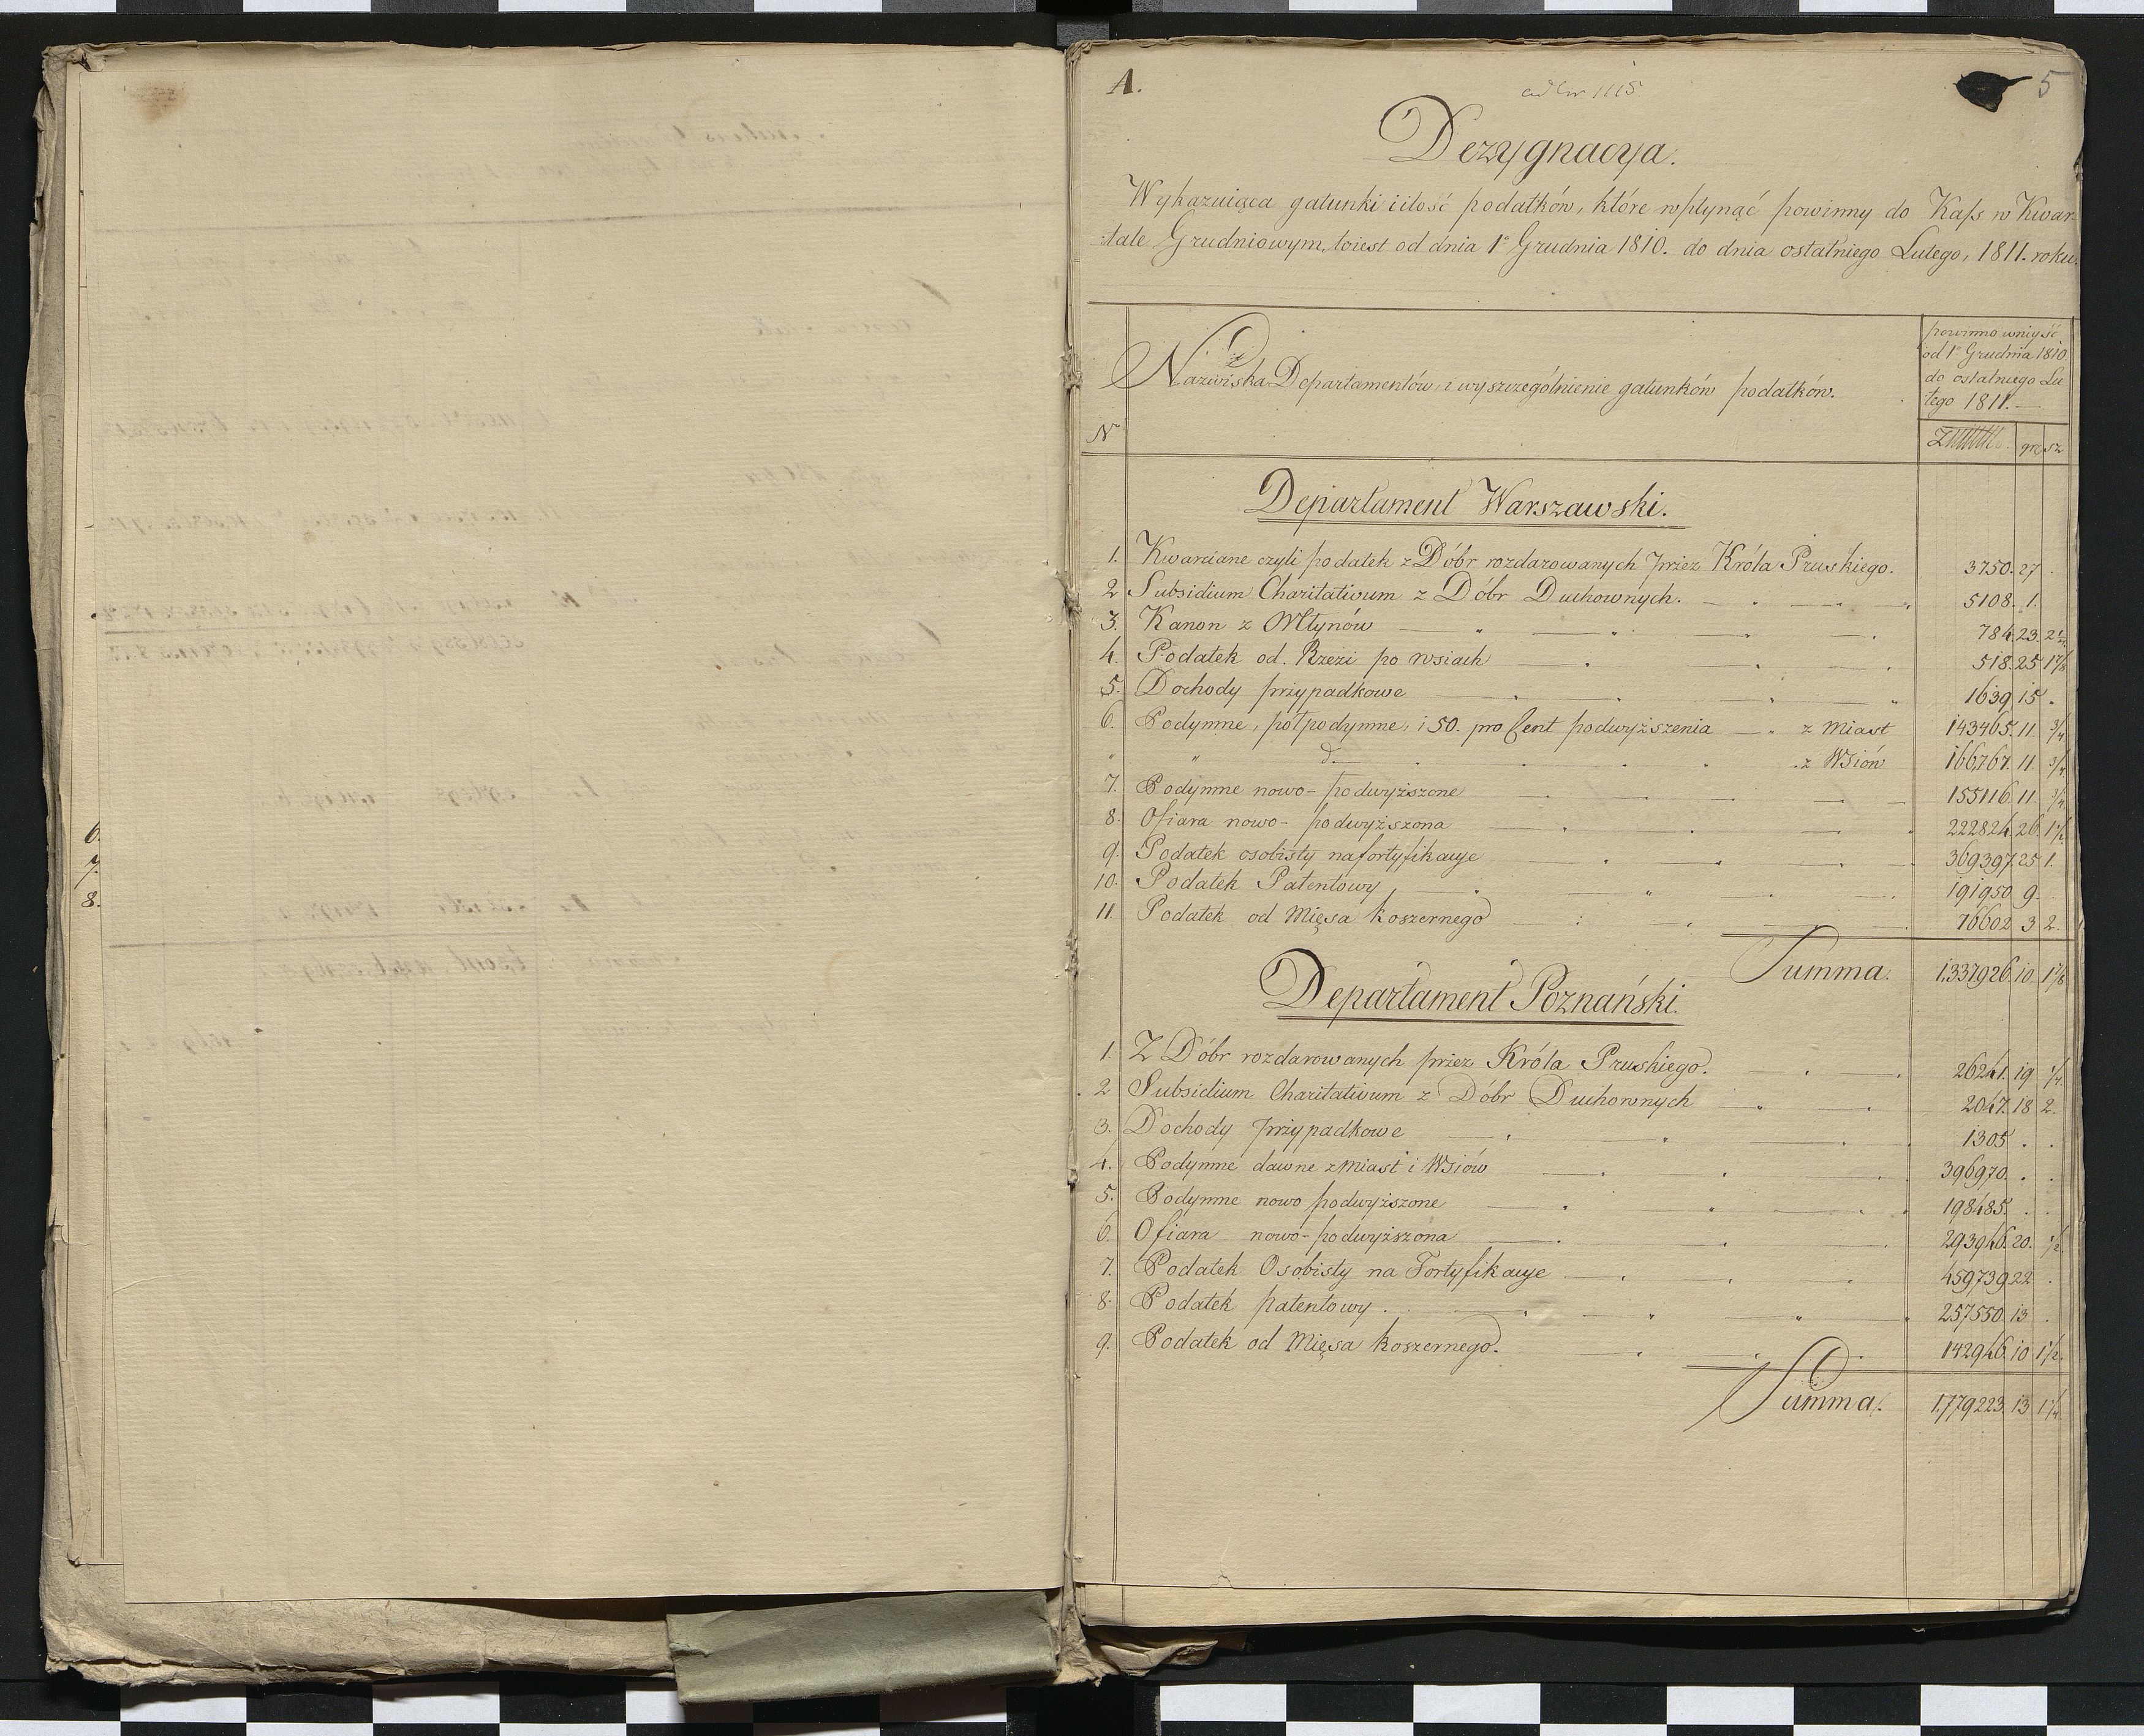 6.
7.
8.
A.
5
Dezygnacya.
Wykazuiąca gatunki i ilość podatków, które wpłynąć powinny do Kass w Kwar-
tale Grudniowym, toiest od dnia 1º Grudnia 1810. do dnia ostatniego Lutego, 1811. roku.
Nº
Nazwiska Departamentów, i wyszczególnienie gatunków podatków.
powinno wniyść
od 1º Grudnia 1810
do ostatniego Lu
tego 1811.
gr sz
Departament Warszawski.
1. Kwarciane czyli podatek z Dóbr rozdarowanych przez Króla Pruskiego. 3750. 27 .
2 Subsidium Charitativum z Dóbr Duchownych. 5108. 1.
3. Kanon z Młynów 784. 23.
4. Podatek od Rzezi po wsiach 518. 25 1 7/8
5. Dochody przypadkowe 1639 15 .
6. Podymne, półpodymne, i 50. pro Cent podwyższenia z Miast 143465. 11. 3/4
" " do z Wsiów 166767. 11. 3/4
7. Podymne nowo-podwyższone 155116. 11. 3/4
8. Ofiara nowo-podwyższona 222824. 26. 1 1/2
9. Podatek osobisty na fortyfikacye 369397 25 1.
10. Podatek Patentowy 191950 9.
11. Podatek od Mięsa koszernego 76602 3 2.
Summa. 1.337926. 10. 1 7/8
Departament Poznański.
1. Z Dóbr rozdarowanych przez Króla Pruskiego. 26241. 19 1/4.
2 Subsidium Charitativum z Dóbr Duchownych 2047. 18 2.
3. Dochody przypadkowe 1305 . .
4. Podymne dawne z Miast i Wsiów 396970. . .
5. Podymne nowo podwyższone 198485. . .
6. Ofiara nowo-podwyższona 293946. 20. 1/2.
7. Podatek Osobisty na Fortyfikacye 459739 22 .
8. Podatek patentowy. 257550. 13 .
9. Podatek od Mięsa koszernego. 142946. 10 1 1/2.
Summa. 1.779223. 13 1 1/4